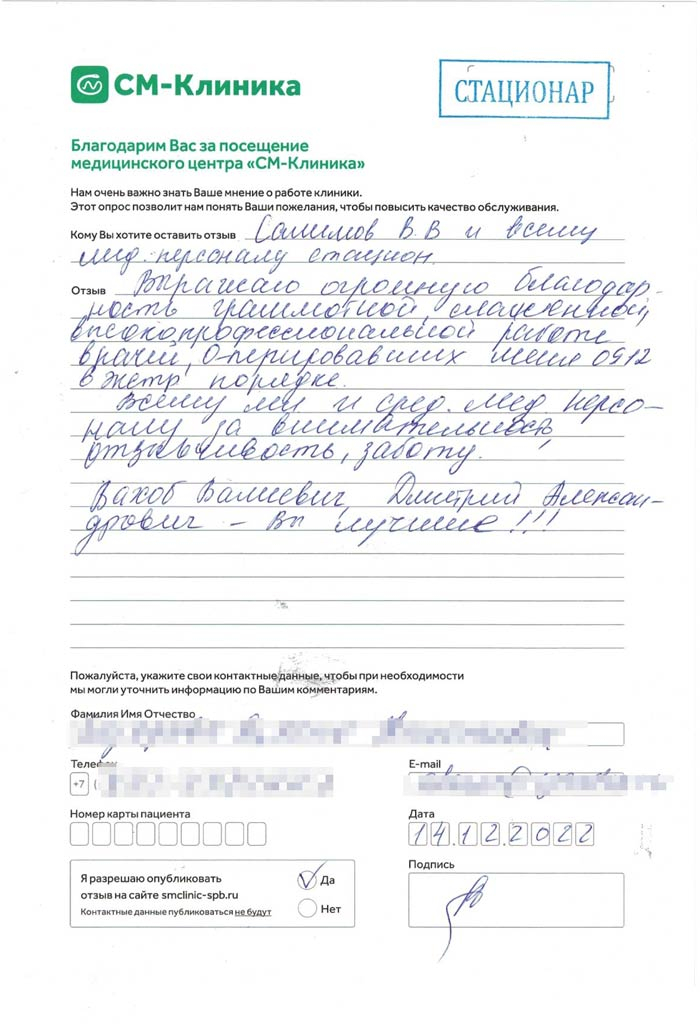 СМ-Клиника
СТАЦИОНАР
Благодарим Вас за посещение
медицинского центра «СМ-Клиника»
Нам очень важно знать Ваше мнение о работе клиники.
Этот опрос позволит нам понять Ваши пожелания, чтобы повысить качество обслуживания.
Кому Вы хотите оставить отзыв Салимов В.В и всему
мед. персоналу стацион.
Отзыв Выражаю огромную благодар-
ность грамотной, слаженной,
высокопрофессиональной работе
врачей, оперировавших меня 09.12
в экстр. порядке.
Всему мл и сред. мед персо-
налу за внимательность,
отзывчивость, заботу.
Вахоб Валиевич, Дмитрий Алексан-
дрович - Вы лучшие!!!
Пожалуйста, укажите свои контактные данные, чтобы при необходимости
мы могли уточнить информацию по Вашим комментариям.
Фамилия Имя Отчество
Телефон
+7 (
E-mail
Номер карты пациента
Дата
14.12.2022
Я разрешаю опубликовать
отзыв на сайте smclinic-spb.ru
Контактные данные публиковаться не будут
Да
Нет
Подпись